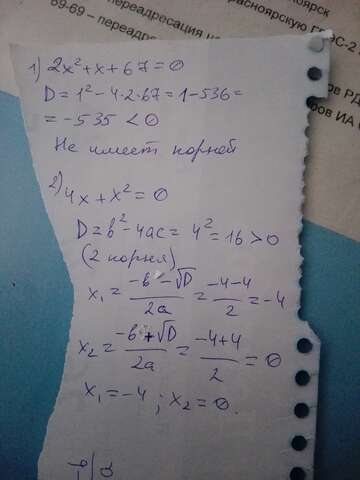 69-69 – переадрес
переадресация на
расноярск
расноярскую ГРЭС-2
1) 2x²+x+67=0
D=1²-4·2·67=1-536=
=-535 <0
Не имеет корней
2) 4x+x²=0
D=b²-4ac=4²=16>0
(2 корня)
x₁=(-b-√D)/2a=(-4-4)/2=-4
x₂=(-b+√D)/2a=(-4+4)/2=0
x₁=-4; x₂=0.